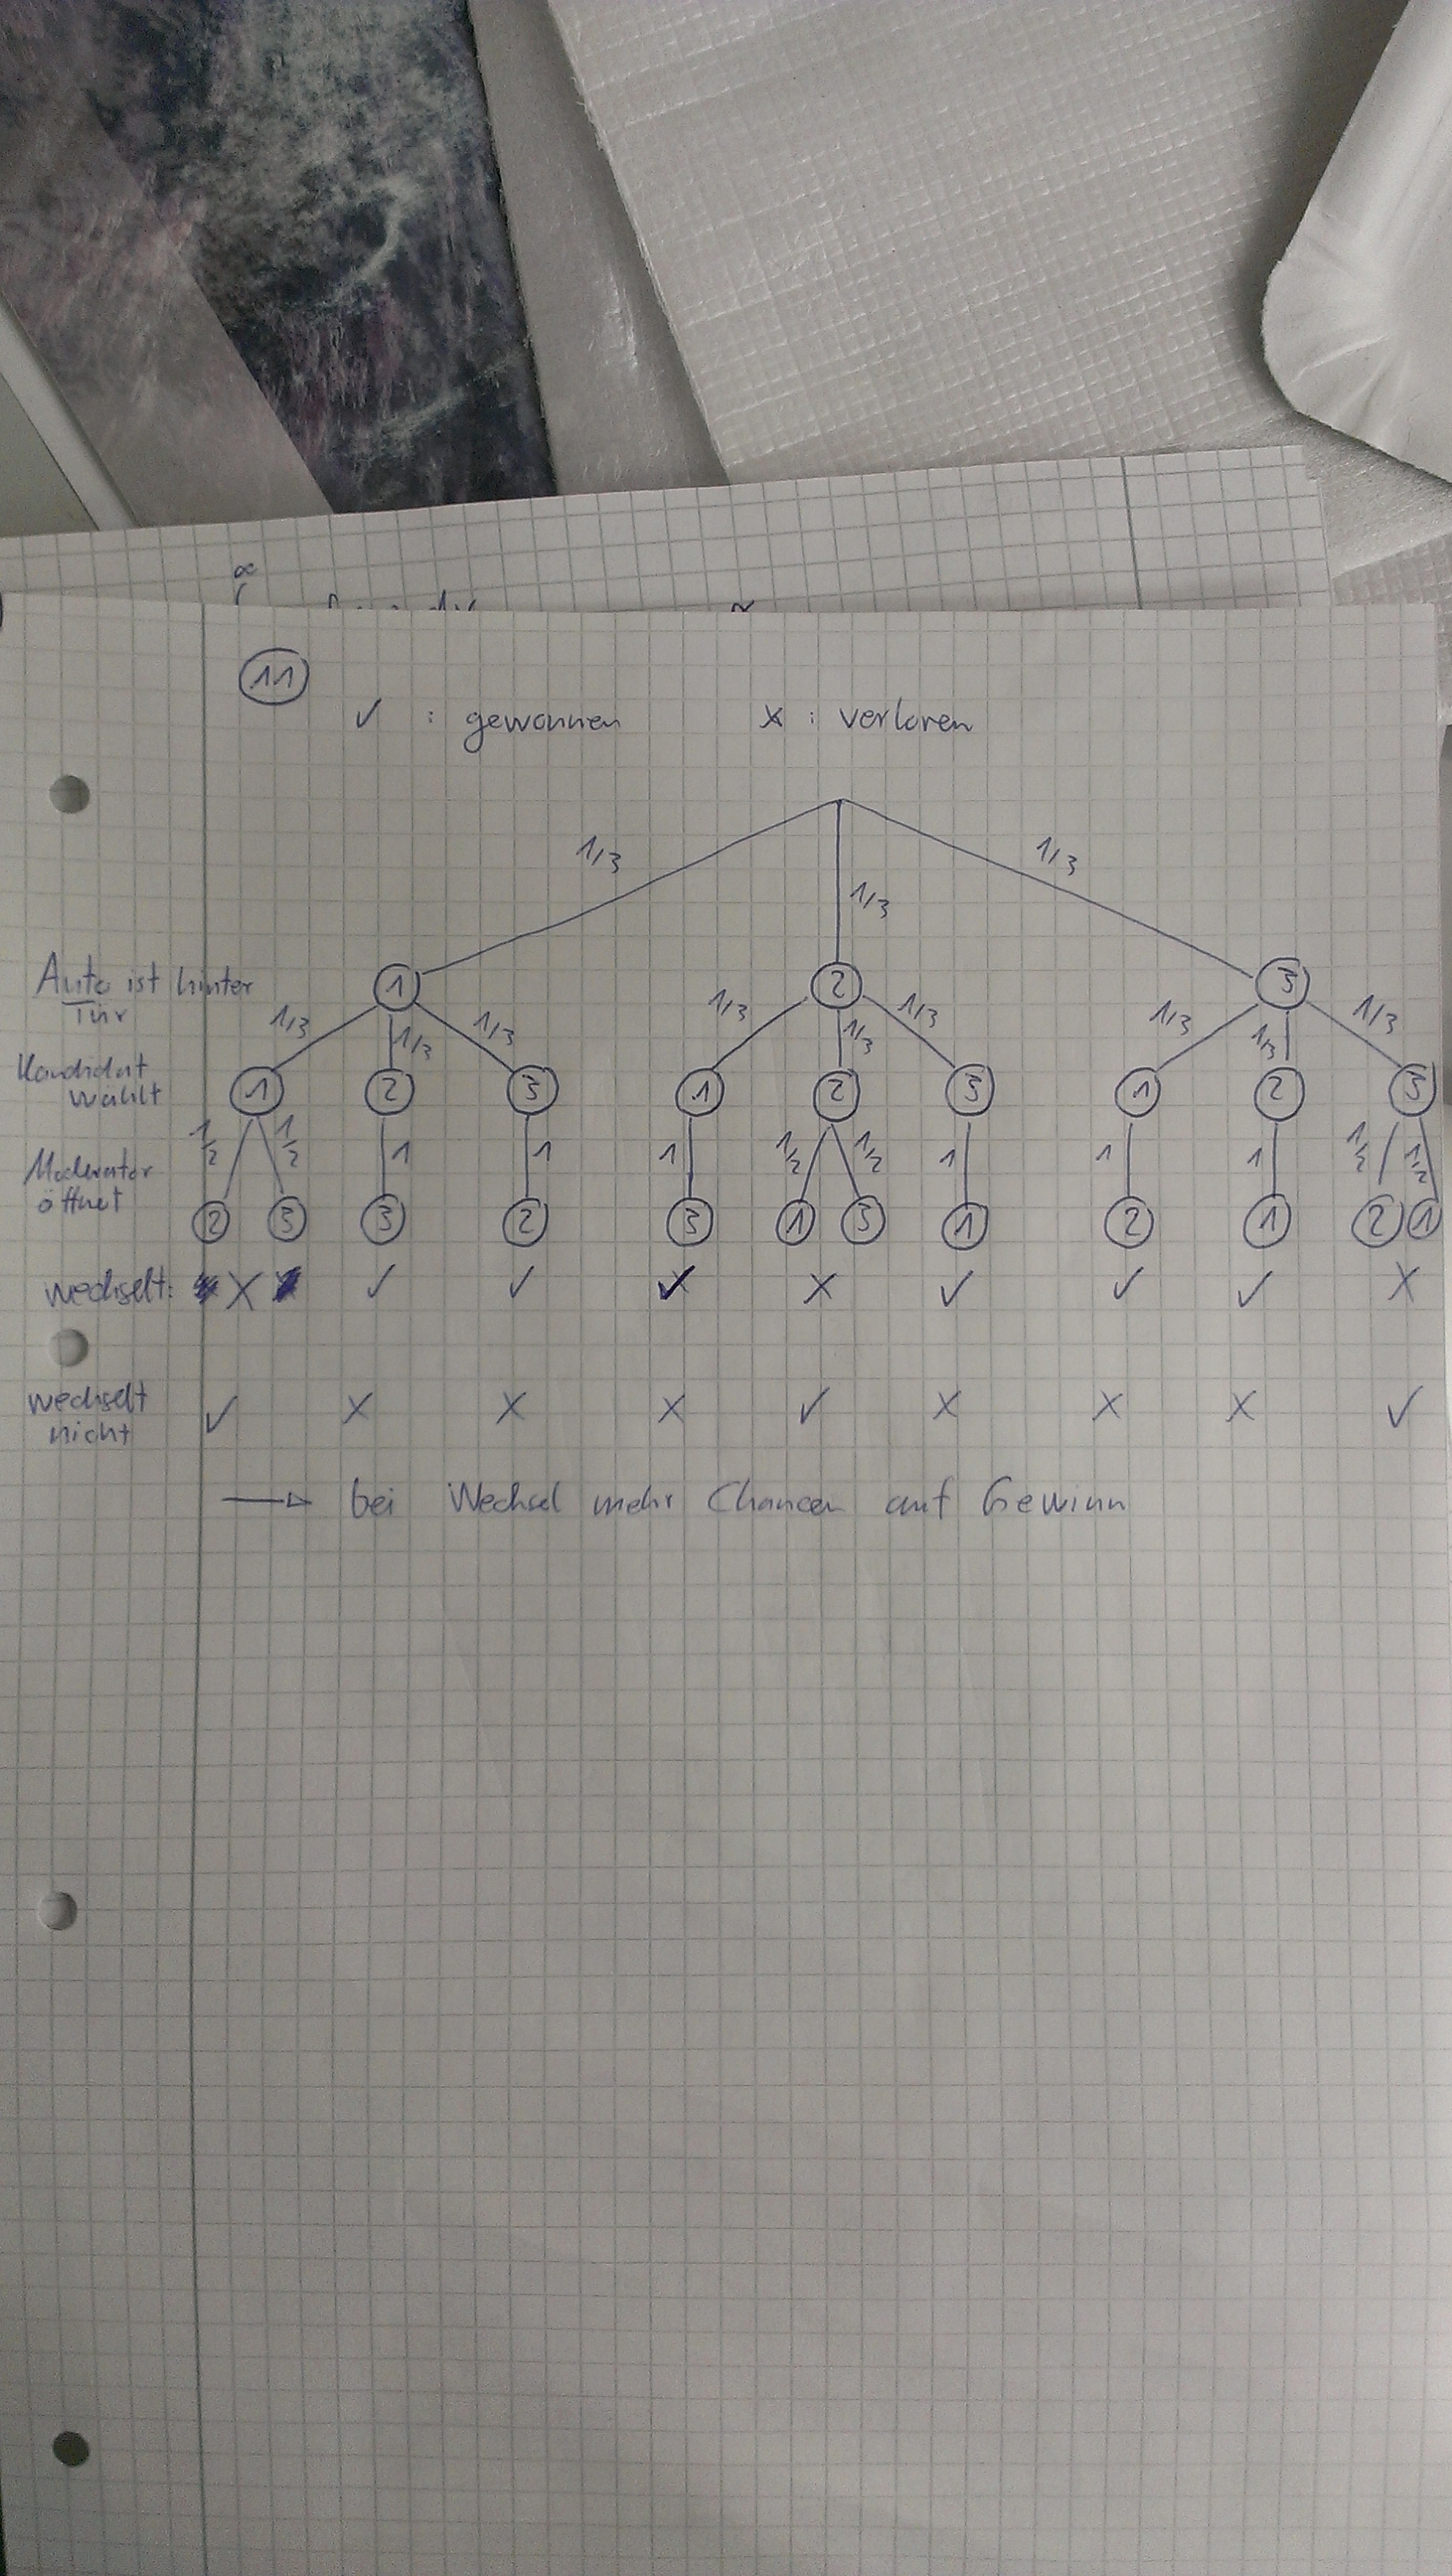 11
✓ : gewonnen x : verloren
1/3 1/3 1/3
Auto ist hinter Tür 1 2 3
1/3 1/3 1/3 1/3 1/3 1/3 1/3 1/3 1/3
Kandidat wählt 1 2 3 1 2 3 1 2 3
1/2 1/2 1 1 1 1/2 1/2 1 1 1 1/2 1/2
Moderator öffnet 2 3 3 2 3 1 3 1 2 1 2 1
wechselt: X ✓ ✓ ✓ X ✓ ✓ ✓ X
wechselt nicht ✓ X X X ✓ X X X ✓
→ bei Wechsel mehr Chancen auf Gewinn